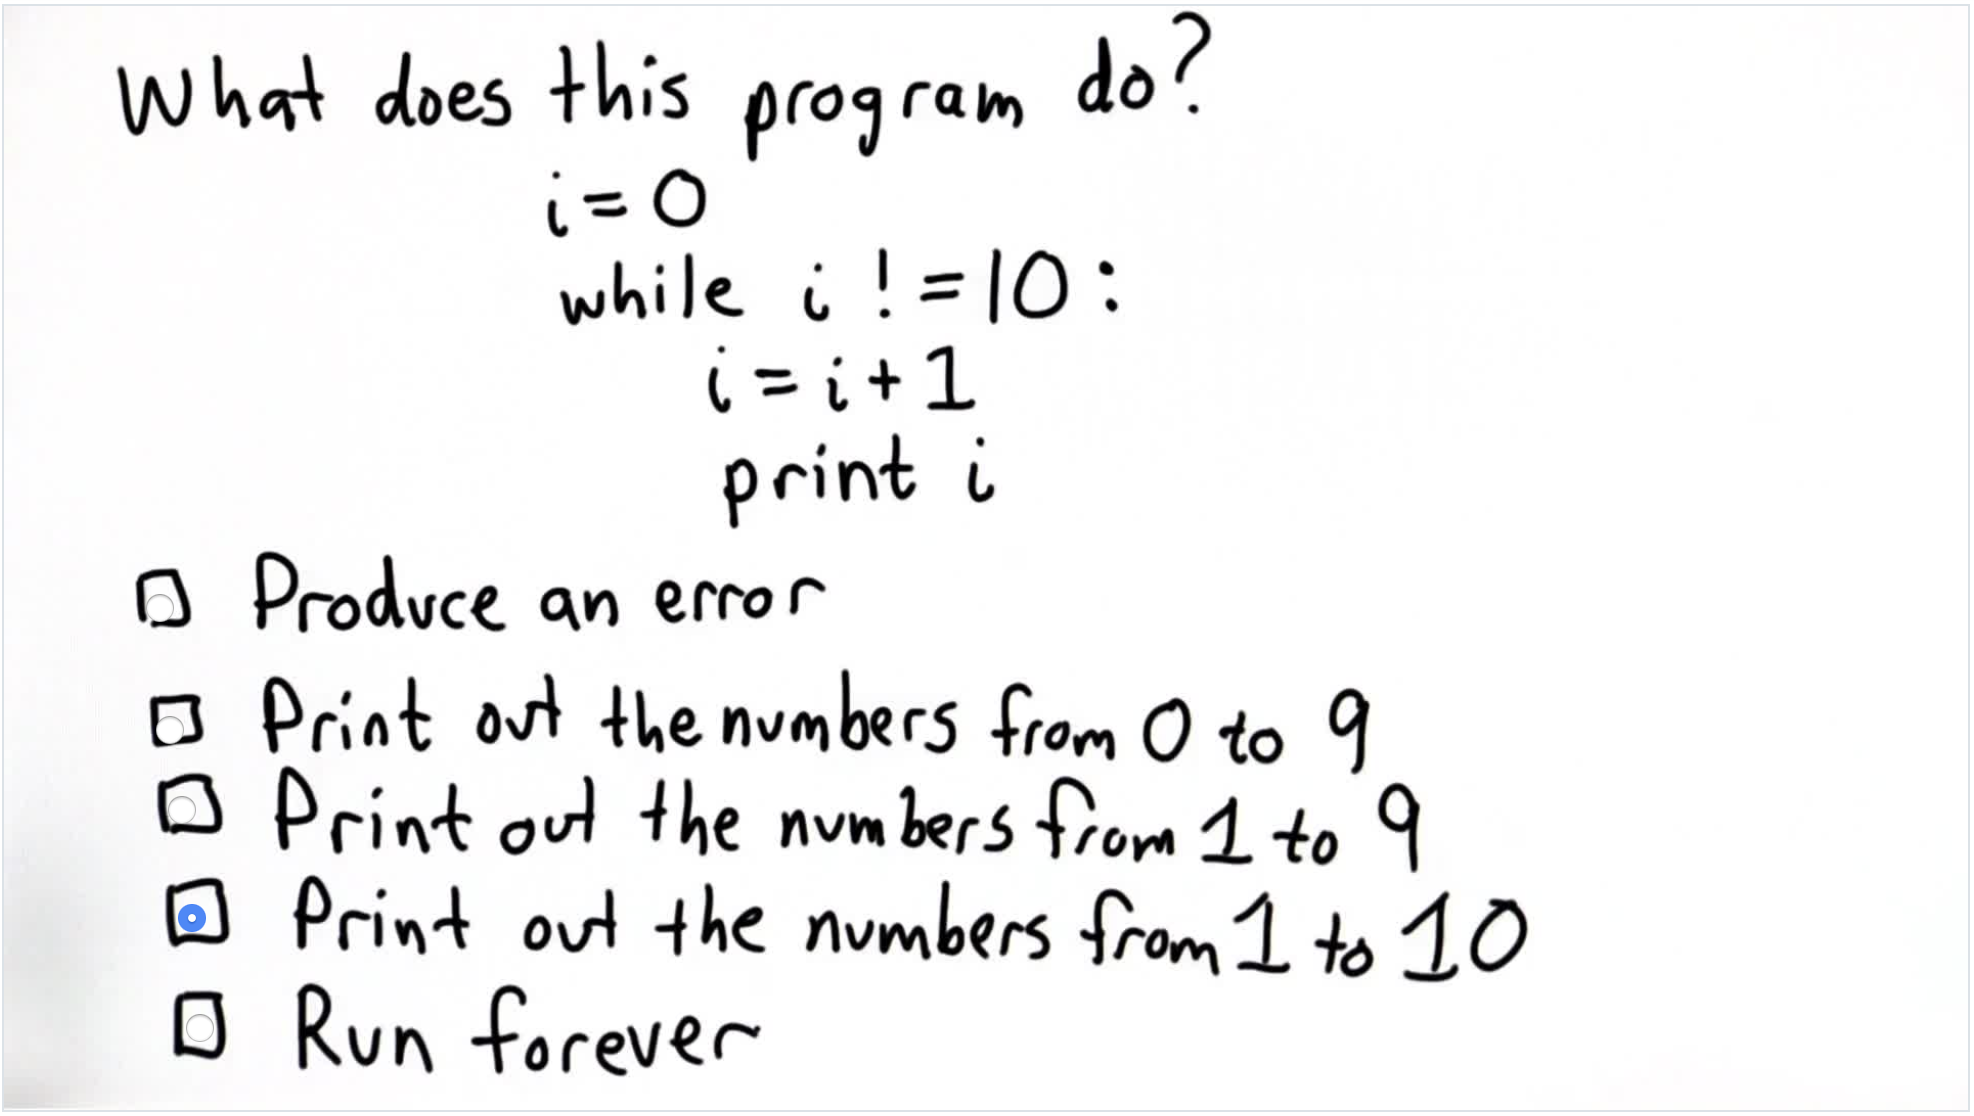 What does this program do?
i = 0
while i != 10:
i = i + 1
print i
Produce an error
Print out the numbers from 0 to 9
Print out the numbers from 1 to 9
Print out the numbers from 1 to 10
Run forever